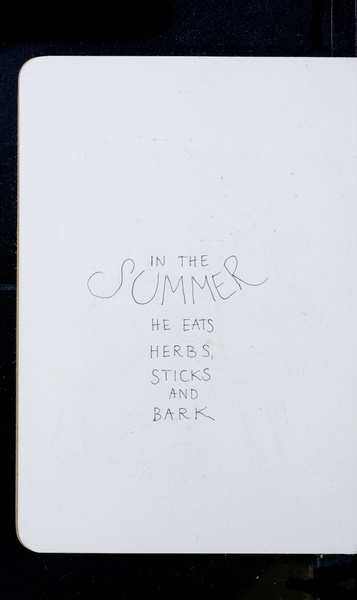 IN THE
SUMMER
HE EATS
HERBS,
STICKS
AND
BARK